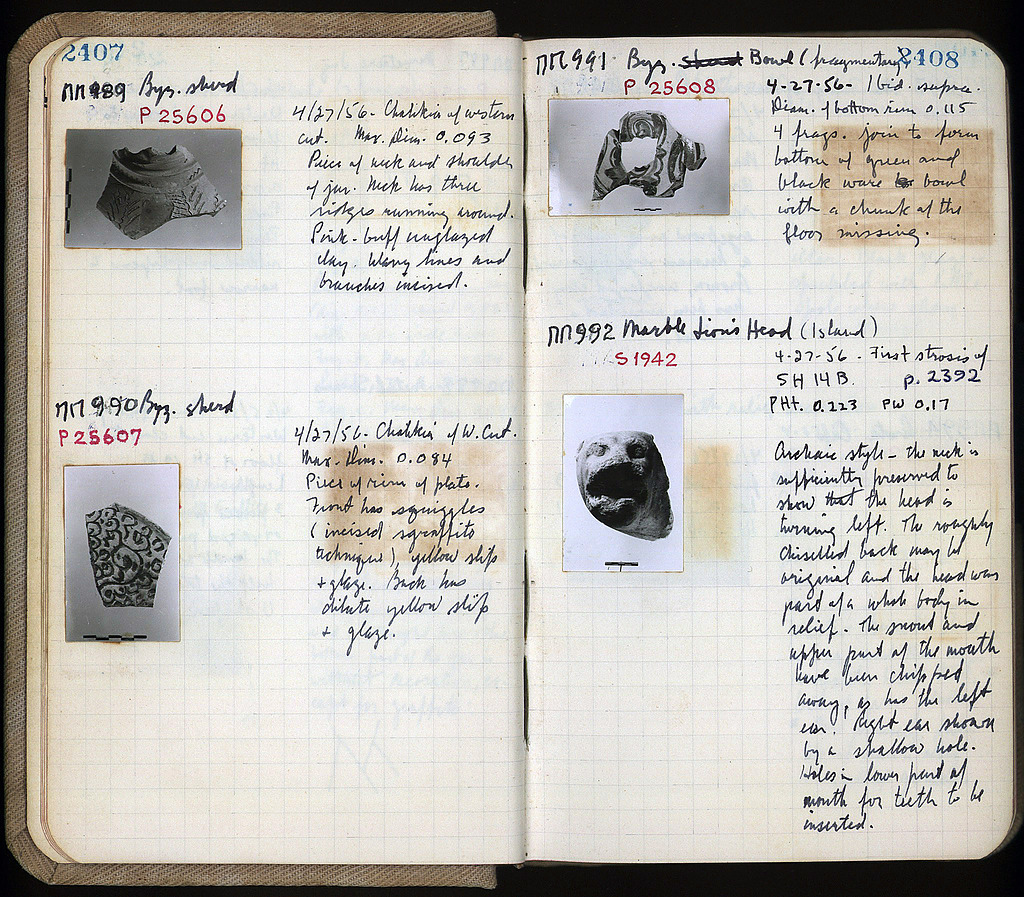 2407
ΠΠ 989 Byz. sherd
P 25606
4/27/56- Chalikia of western
cut. Max. Dim. 0.093
Piece of neck and shoulder
of jar. Neck has three
ridges running around.
Pink-buff unglazed
clay. Wavy lines and
branches incised.
ΠΠ 990 Byz. sherd
P 25607
4/27/56- Chalikia of W. Cut.
Max. Dim. 0.084
Piece of rim of plate.
Front has squiggles
(incised sgraffito
technique), yellow slip
+ glaze. Back has
dilute yellow slip
+ glaze.
2408
ΠΠ 991 Byz. sherd Bowl (fragmentary)
P 25608
4-27-56- Ibid. supra.
Diam. of bottom rim 0.115
4 frags. join to form
bottom of green and
black ware bowl
with a chunk of the
floor missing.
ΠΠ 992 Marble Lion's Head (Island)
S 1942
4-27-56- First strosis of
SH 14 B. p. 2392
PHt. 0.223 PW 0.17
Archaic style - the neck is
sufficiently preserved to
show that the head is
turning left. The roughly
chiselled back may be
original and the head was
part of a whole body in
relief. The snout and
upper part of the mouth
have been chipped
away, as has the left
ear. Right ear shown
by a shallow hole.
Holes in lower part of
mouth for teeth to be
inserted.